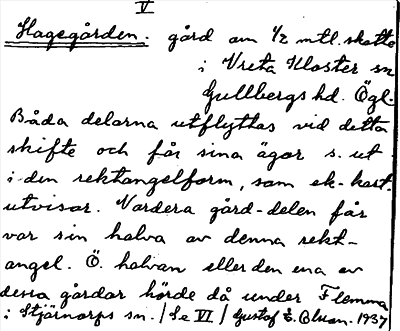 V
Hagegården. gård om 1/2 mtl. skatte
i Vreta Kloster sn
Gullbergs hd. Ögl.
Båda delarna utflyttas vid detta
skifte och får sina ägor s. ut
i den rektangelform, som ek-kart.
utvisar. Vardera gård-delen får
var sin halva av denna rekt-
angel. Ö. halvan eller den ena av
dessa gårdar hörde då under Flemma
i Stjärnorps sn. / Se VI / Gustaf E. Olsson. 1937